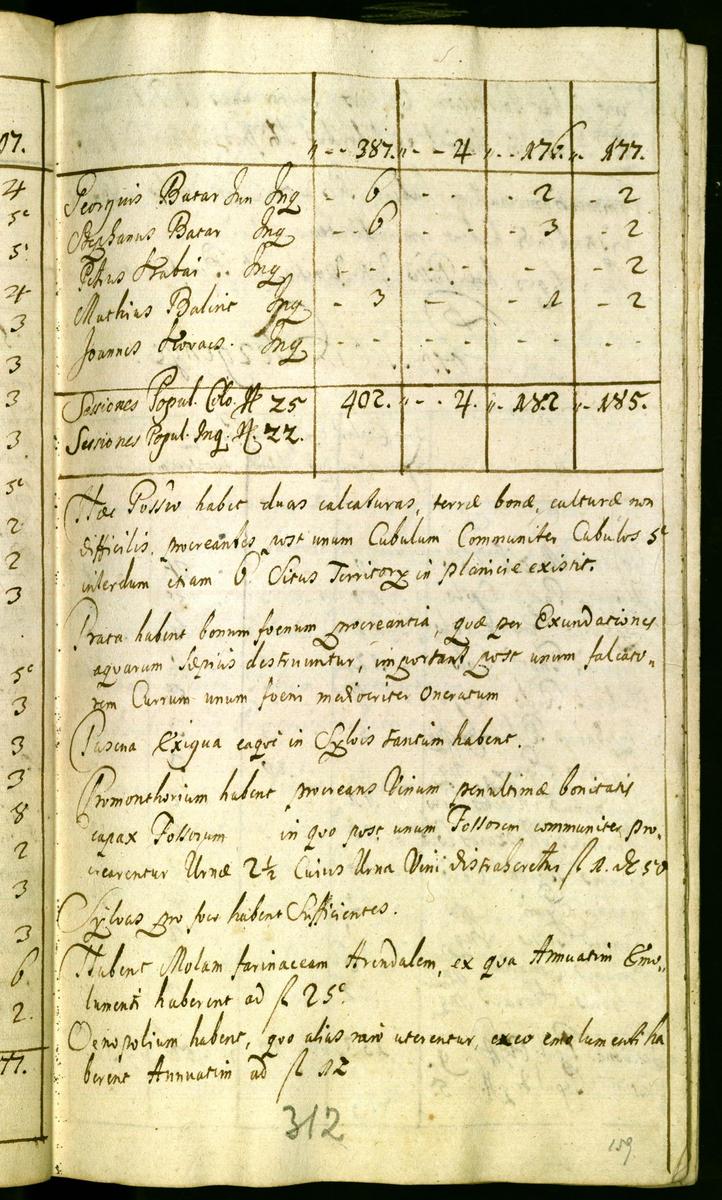 07.
„ - - 387. „ - - 4 „ - - 176. „ - 177.
4 Georgius Bacar Jun Inq - 6 - - - - 2 - 2
5 Stephanus Bacar Inq - - 6 - - - - 3 - 2
5 Petrus Trabai .. Inq - - - - - - - - - 2
4 Mathias Balint Inq - 3 - - - 1 - 2
3 Joannes Kovacs. Inq - - - - - - - - -
3
3 Sessiones Popul. Colo. N 25 402. „ - - 4. „ - 182 „ - 185.
3 Sessiones Popul. Inq. N. 22.
5 Hæc Possio habet duas calcaturas, terræ bonæ, culturæ non
2 difficilis, procreantes post unum Cubulum Communiter Cubulos 5
2 interdum etiam 6 Situs Territory in planicie existit.
3
Prata habent bonum foenum procreantia, quæ per Exundationes
5 aquarum sæpius destruuntur, important post unum falcato-
3 rem Currum unum foeni mediocriter oneratum
3 Pascua Exigua eaque in Sylvis tantum habent.
3 Promonthorium habent procreans Vinum penultimæ bonitatis
8 capax Fossorum in quo post unum Fossorem communiter pro-
2 crearentur Urnæ 2½ Cuius Urna Vini distraheretur fl 1. d 50
3 Sylvas pro foco habent Sufficientes.
3
6 Habent Molam farinaceam Arendalem, ex qua Annuatim Emo-
2. lumenti haberent ad fl 25.
Oenopolium habent, quo alias raro uterentur, ex eo emolumenti ha
77. berent Annuatim ad fl 12
312
159